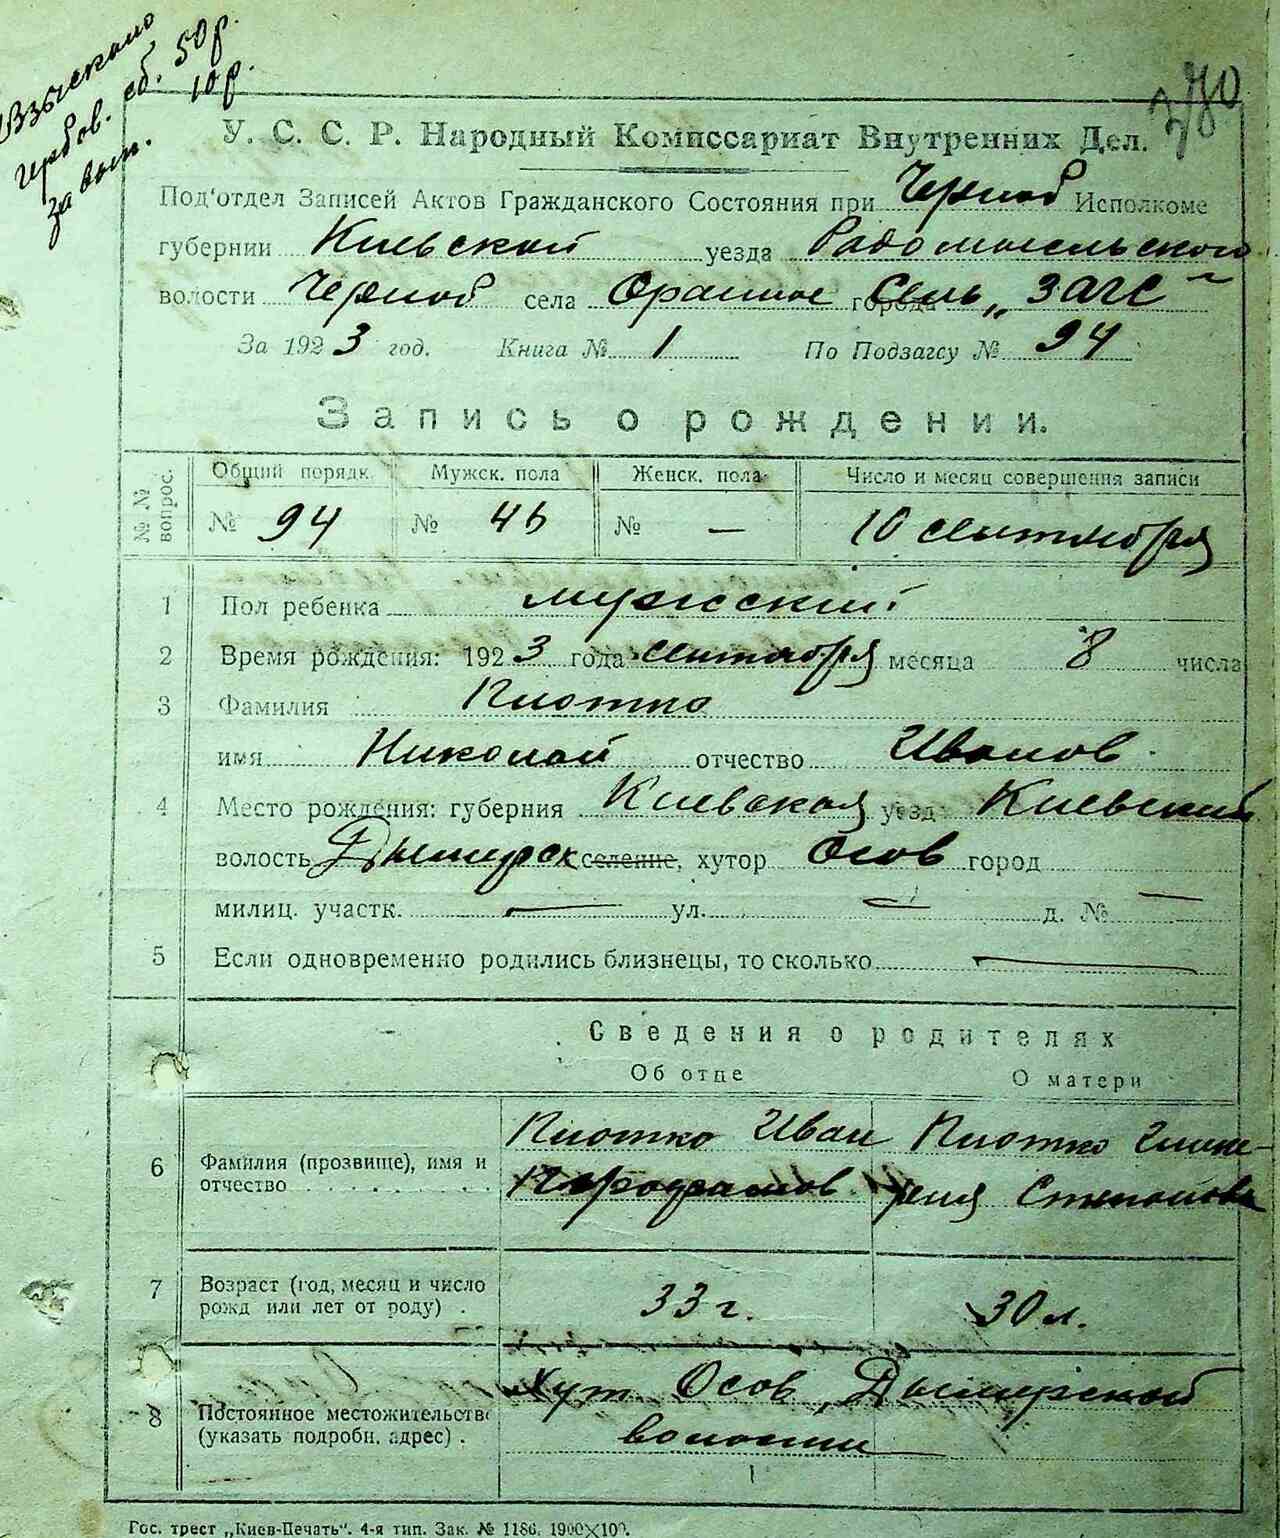 Взыскано
гербов. сб. 50 р.
за вып. 10 р.
У. С. С. Р. Народный Комиссариат Внутренних Дел.
Под'отдел Записей Актов Гражданского Состояния при Черноб Исполкоме
губернии Киевской уезда Радомысльского
волости Черноб села Оранное города Сель „ЗАГС“
За 1923 год. Книга № 1 По Подзагсу № 94
Запись о рождении.
№ № вопрос.
Общий порядк. Мужск. пола Женск. пола Число и месяц совершения записи
№ 94 № 46 № — 10 сентября
1 Пол ребенка мужский
2 Время рождения: 1923 года сентября месяца 8 числа
3 Фамилия
имя Николай отчество Иванов
4 Место рождения: губерния Киевская уезд Киевский
волость Дымерск селение, хутор Осов город
милиц. участк. — ул. — д. № —
5 Если одновременно родились близнецы, то сколько —
Сведения о родителях
Об отце О матери
6 Фамилия (прозвище), имя и отчество
Иван
Степанова
7 Возраст (год, месяц и число рожд или лет от роду) .
33 г. 30 л.
8 Постоянное местожительств (указать подробн. адрес) .
Хут. Осов, Дымерской
волости
Гос. трест „Киев-Печать“. 4-я тип. Зак. № 1186. 1900×100.